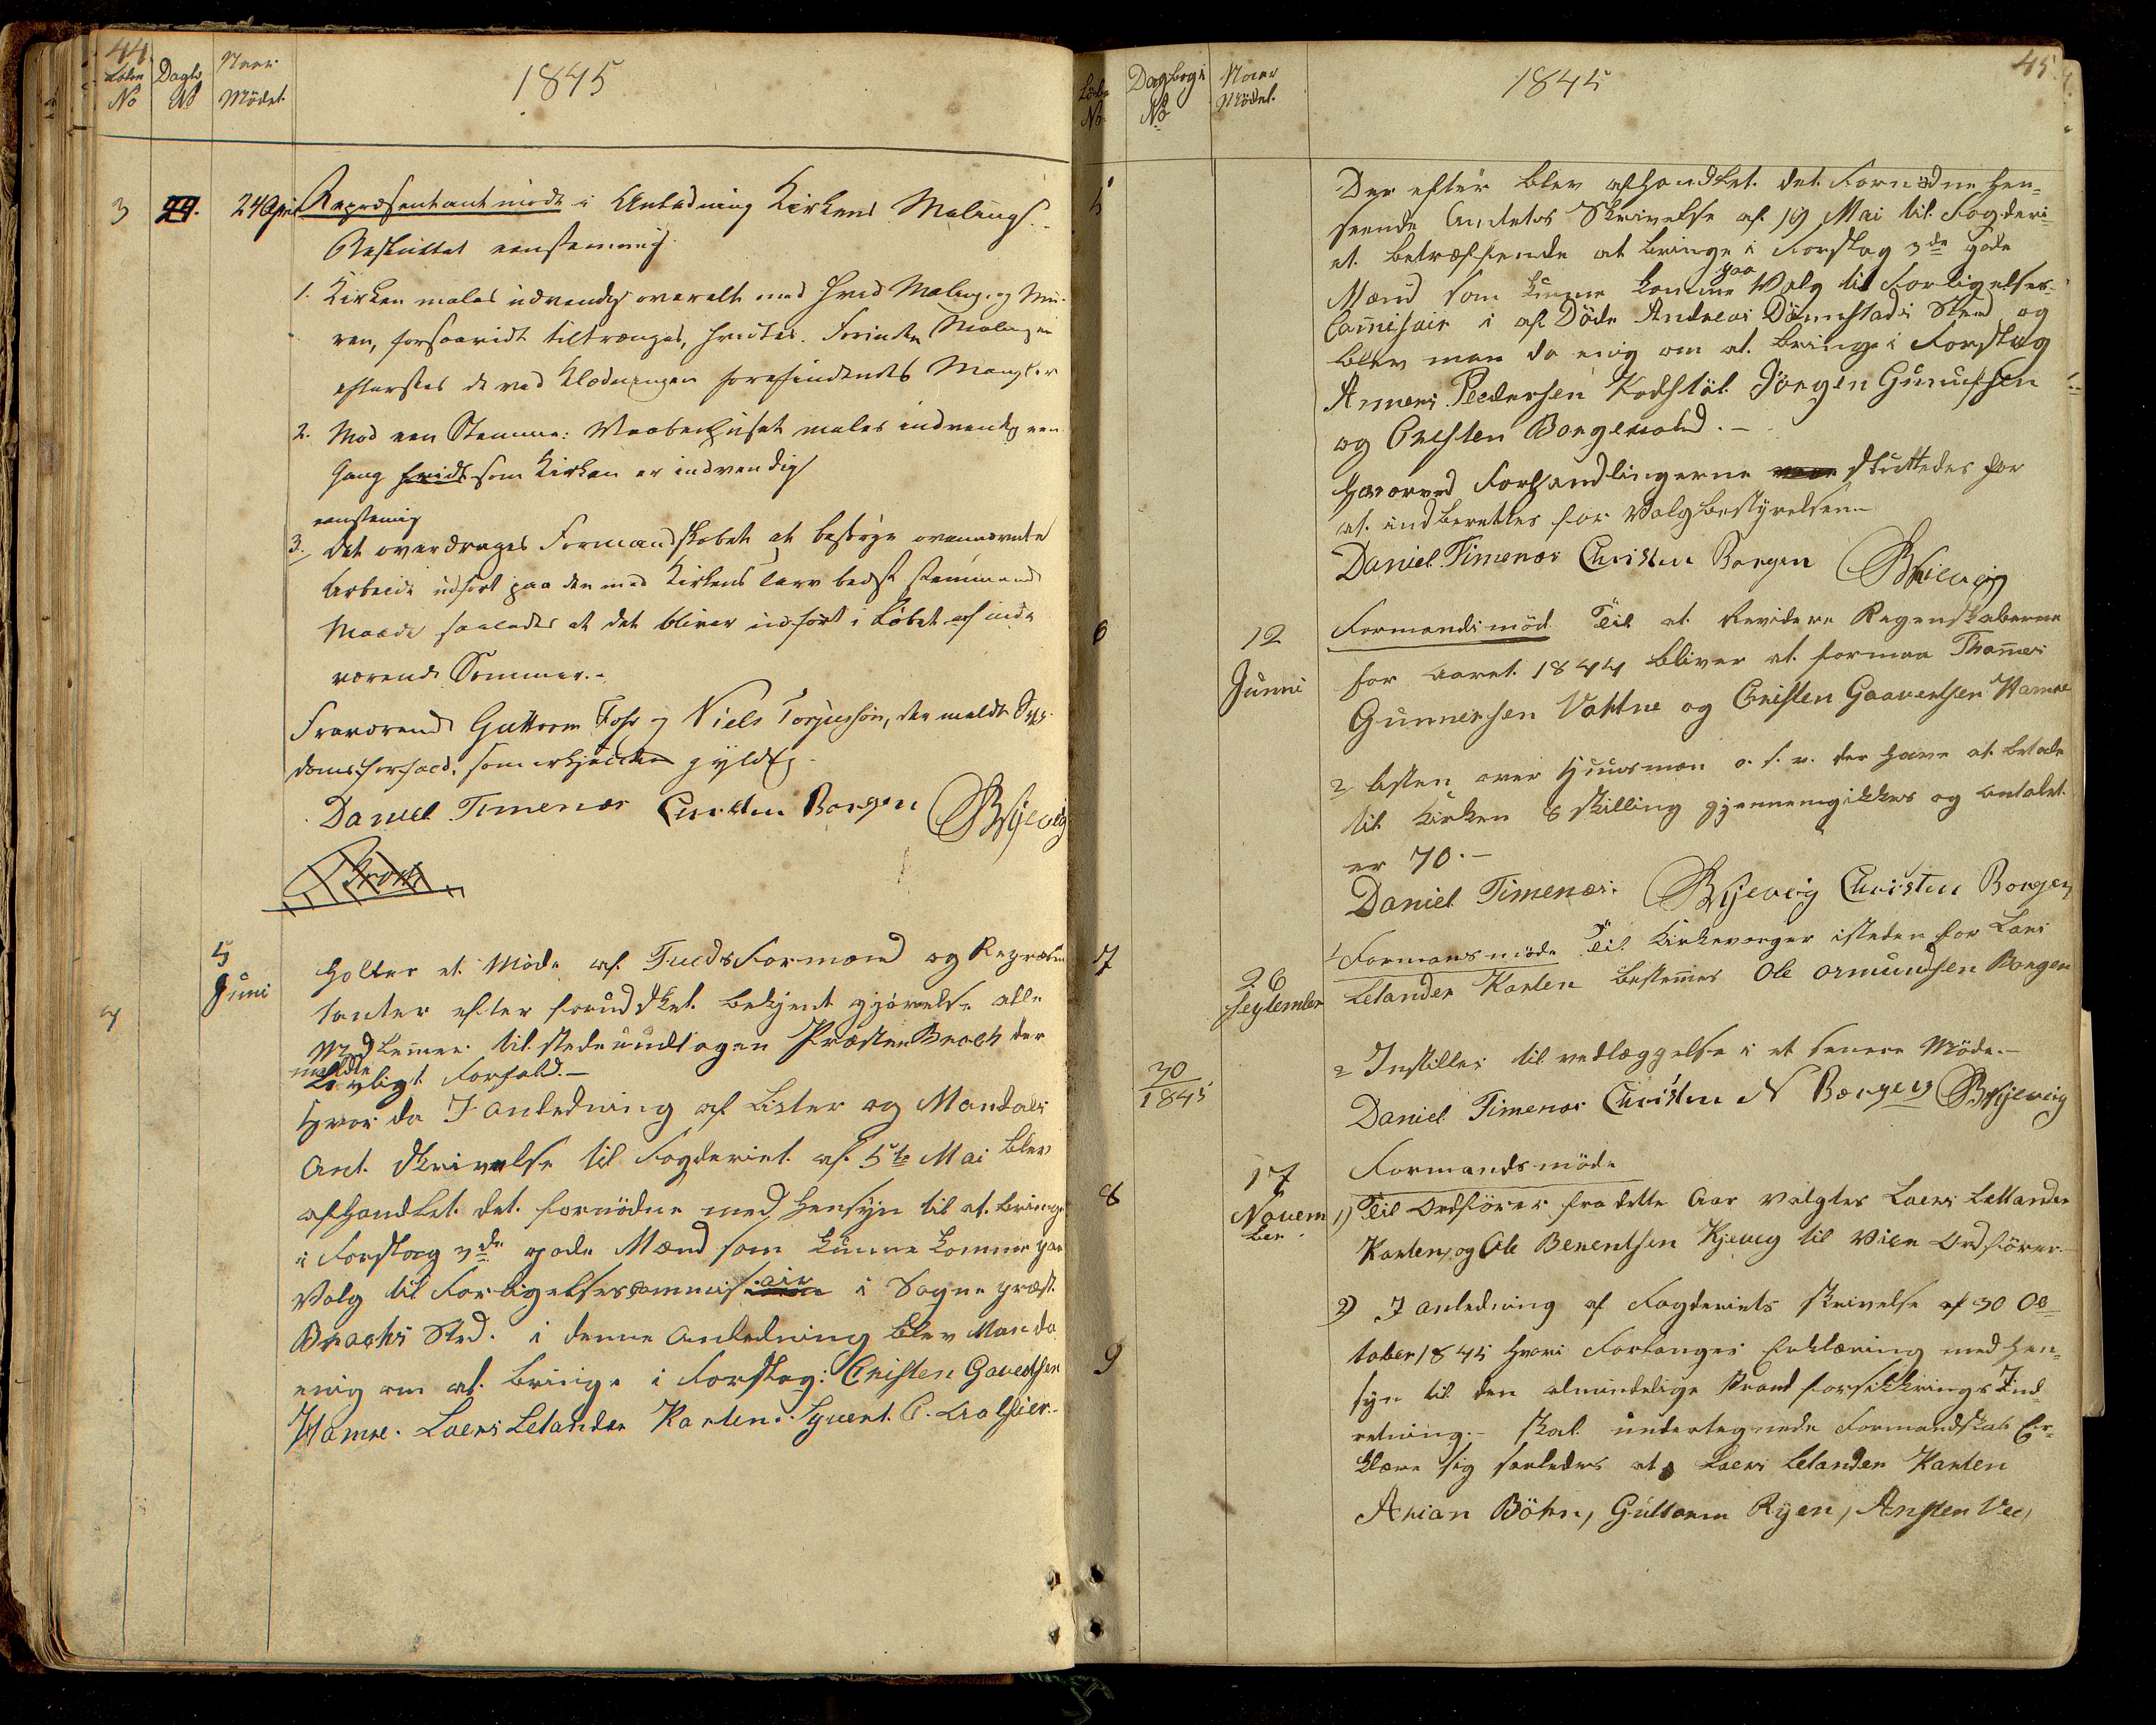 44.
Løbe No
Dagb. No
Naar Mödet
1845
3
24.
24 April
Repræsentantmøde i Anledning Kirkens Maling.
Besluttet eenstemmig
1. Kirken males udvendig overalt med hvid Maling, og Mu-
ren, forsaavidt tiltrænges, hvidtes. Forinden Malingen
eftersees de ved Klædningen forefindendes Mangler
2. Mod een Stemme: Vaabenhuset males indvendig een
Gang hvidt som Kirken er indvendig
eenstemig
3. Det overdrages Formandskabet at besørge ovennævnte
Arbeide udført paa den med Kirkens Tarv bedst stemmende
Maade saaledes at det bliver udført i Løbet af inde
værende Sommer.-
Fraværende Guttorm Foss og Niels Torjussøn, der meldte Syg-
domsforfald, som erkjendtes gyldig.
Daniel Timenæs Christen Borgen BKjevig
Broch
4
5 Juni
Holtes et Møde af Fulds Formænd og Repræsen
tanter efter forudsket bekjent gjørelse alle
Medlemer tilstede undtagen Præsten Broch der
meldte
Lovligt Forfald.-
Hvor da I anledning af Lister og Mandals
Amt. Skrivelse til Fogderiet af 5te Mai blev
afhandlet det fornødne med Hensyn til at bringe
i Forslag 3de gode Mænd som kunne komme paa
Valg til Forligelsescommissair i Sogne præst
Brochs Sted. i denne Anledning blev Man da
enig om at bringe i Forslag: Cristen Gaveltsen
Hamre. Laers Letander Karten. Syvert C. Aalsier.-
45.
Löbe No
Dagbogs No
Naar Mödet.
1845
5
Der efter blev afhandlet det Fornødne hen-
seende Amtets Skrivelse af 19 Mai til Fogderi-
et betræffende at bringe i Forslag 3de gode
Mænd som kunne komme paa Valg til Forligelses-
Comisair i af Døde Andreas Dönnestads Sted og
blev man da enig om at bringe i Forslag
Anners Pedersen Kodstöl Jörgen Gunufsen
og Cristen Borgen
Hvorved Forhandlingerne sluttedes for
at indberettes for Valgbestyrelsen.-
Daniel Timenæs Christen Borgen BKjevig
6
12 Junni
Formandsmöd Til at Revidere Regenskaberne
for Aaret 1844 bliver at formaa Thomes
Gunnersen Vatne og Cristen Gaaveltsen Hamre
2 Listen over Huusmæn o. s. v. der have at betale
til Kirken 8 Skilling gjennemgikkes og Antalet
er 70.-
Daniel Timenæs. BKjevig Christen Borgen
7
26 September
1 Formansmöde Til Kirkeværger isteden for Lars
Letander Karten bestemes Ole Ormundsen Borgen
30
1845
2 Instilles til vedlæggelse i et senere Möde.-
Daniel Timenæs Christen N Borgen BKjevig
8
17 November
Formandsmöde
1) Til Ordförer fra dette Aar valgtes Laers Lettander
Karten, og Ole Berentsen Kjevig til Vise Ordförer
9
2) I anledning af Fogderiets Skrivelse af 30 Oc-
tober 1845 hvori Forlanges Erklæring med Hen-
syn til den almindelige Brand forsikkrings Ind
retning.- skal undertegnede Formandskab Er-
klære sig saaledes at Laers Letander Karten
Arian Böhn, Guttorm Ryen, Ansten Vee,